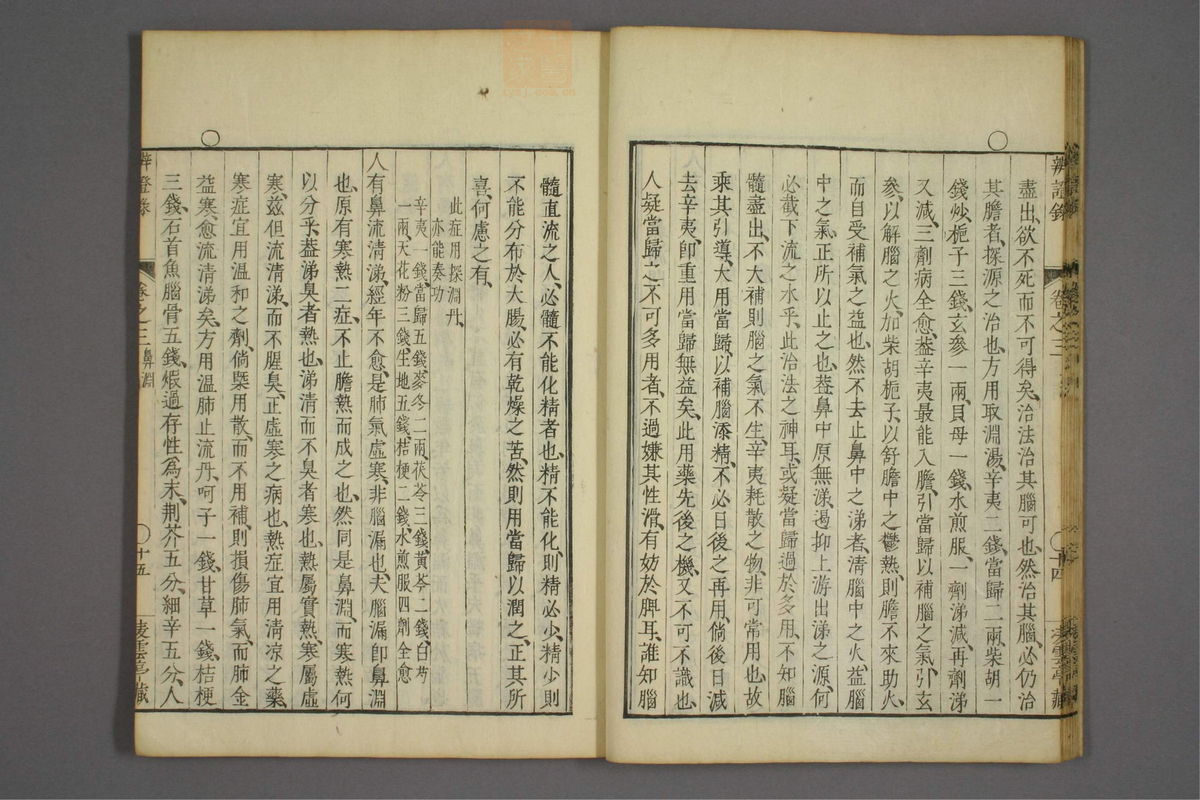 辨證錄 卷之三 十四
盡出、欲不死而不可得矣、治法治其腦可也、然治其腦、必仍治
其膽者、探源之治也、方用取淵湯、辛夷二錢、當歸二兩、柴胡一
錢、炒梔子三錢、玄參一兩、貝母一錢、水煎服、一劑涕減、再劑涕
又減、三劑病全愈、葢辛夷最能入膽、引當歸以補腦之氣、引玄
參、以解腦之火、加柴胡梔子、以舒膽中之鬱熱、則膽不來助火、
而自受補氣之益也、然不去止鼻中之涕者、清腦中之火、益腦
中之氣、正所以止之也、葢鼻中原無涕、遏抑上游出涕之源、何
必截下流之水乎、此治法之神耳、或疑當歸過於多用、不知腦
髓盡出、不大補則腦之氣不生、辛夷耗散之物、非可常用也、故
乘其引導、大用當歸、以補腦添精、不必日後之再用、倘後日減
去辛夷、卽重用當歸無益矣、此用藥先後之機、又不可不識也、
人疑當歸之不可多用者、不過嫌其性滑、有妨於脾耳、誰知腦
髓直流之人、必髓不能化精者也、精不能化、則精必少、精少則
不能分布於大腸、必有乾燥之苦、然則用當歸以潤之、正其所
喜、何慮之有、
此症用探淵丹、
亦能奏功
辛夷一錢、當歸五錢、麥冬二兩、茯苓三錢、黃芩二錢、白芍
一兩、天花粉三錢、生地五錢、桔梗二錢、水煎服四劑全愈
人有鼻流清涕、經年不愈、是肺氣虛寒、非腦漏也、夫腦漏卽鼻淵
也、原有寒熱二症、不止膽熱而成之也、然同是鼻淵、而寒熱何
以分乎、葢涕臭者熱也、涕清而不臭者寒也、熱屬實熱、寒屬虛
寒、兹但流清涕、而不腥臭、正虛寒之病也、熱症宜用清凉之藥、
寒症宜用溫和之劑、倘槩用散、而不用補、則損傷肺氣、而肺金
益寒、愈流清涕矣、方用溫肺止流丹、呵子一錢、甘草一錢、桔梗
三錢、石首魚腦骨五錢、煅過存性、爲末、荆芥五分、細辛五分、人
辨證錄 卷之三 鼻淵 十五 凌雲亭藏